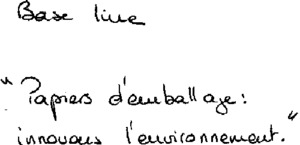 Base line
"Papiers d'emballage:
innovons l'environnement."